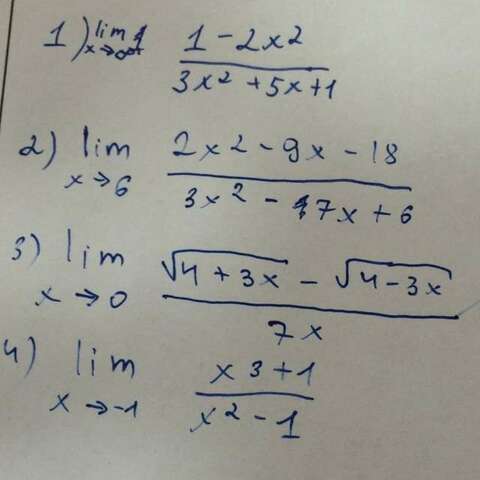 1) lim x→∞ (1-2x²)/(3x²+5x+1)
2) lim x→6 (2x²-9x-18)/(3x²-17x+6)
3) lim x→0 (√(4+3x) - √(4-3x))/(7x)
4) lim x→-1 (x³+1)/(x²-1)